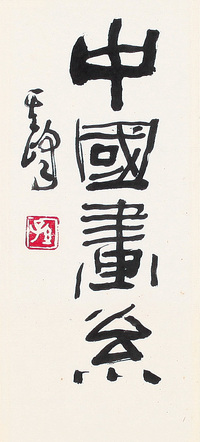 中國畫系